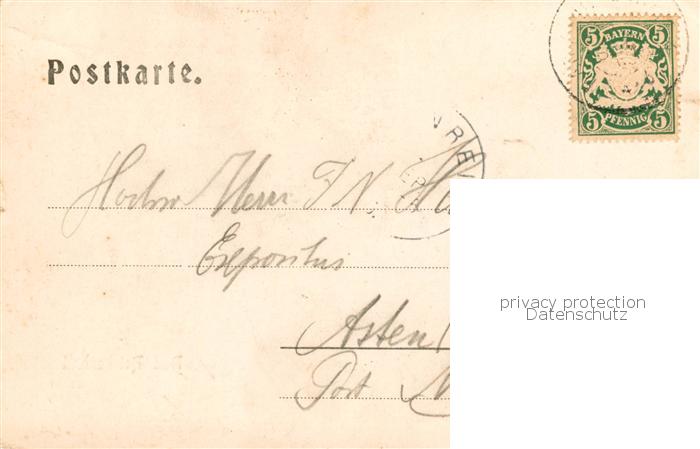 Postkarte.
5 BAYERN 5
5 PFENNIG 5
Hochw Herrn F N
Expositus
Asten
Post
privacy protection
Datenschutz